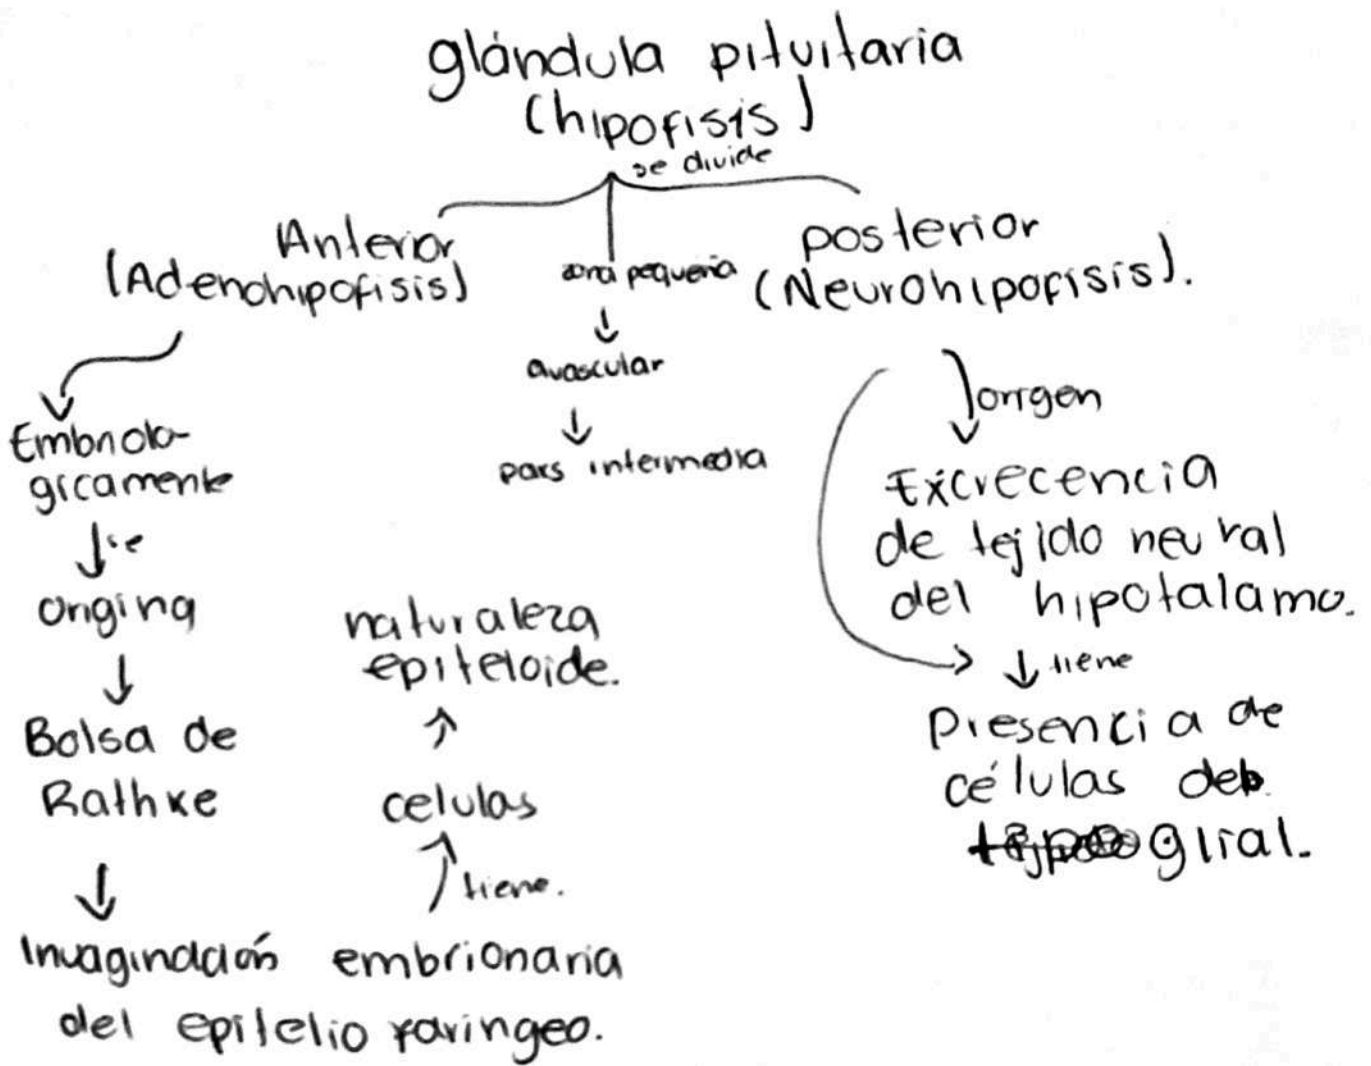 glándula pituitaria
(hipofisis)
se divide
Anterior
(Adenohipofisis)
zona pequeña
posterior
(Neurohipofisis).
avascular
pars intermedia
origen
Embriolo-
gicamente
se
origina
Bolsa de
Rathke
Invaginación embrionaria
del epitelio faringeo.
tiene.
celulas
naturaleza
epiteloide.
Excrecencia
de tejido neural
del hipotalamo.
tiene
Presencia de
células de
glial.